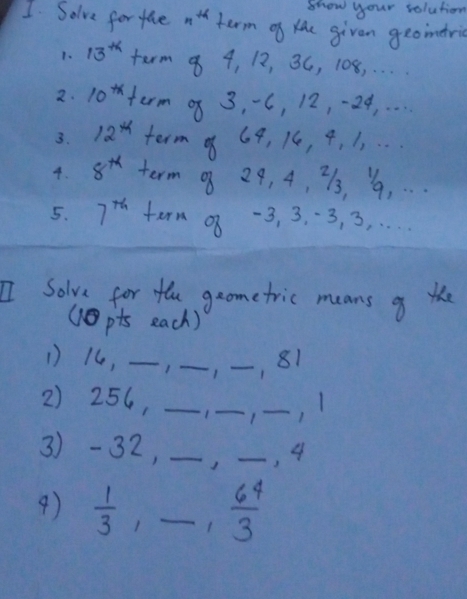 Show your solution
I. Solve for the nth term of the given geometric
1. 13th term of 4, 12, 36, 108, ....
2. 10th term of 3, -6, 12, -24, ....
3. 12th term of 64, 16, 4, 1, ...
4. 8th term of 24, 4, 2/3, 1/9, ...
5. 7th term of -3, 3, -3, 3, ....
II Solve for the geometric means of the
(10 pts each)
1) 16, __, __, __, 81
2) 256, __, __, __, 1
3) -32, __, __, 4
4) 1/3, __, 64/3